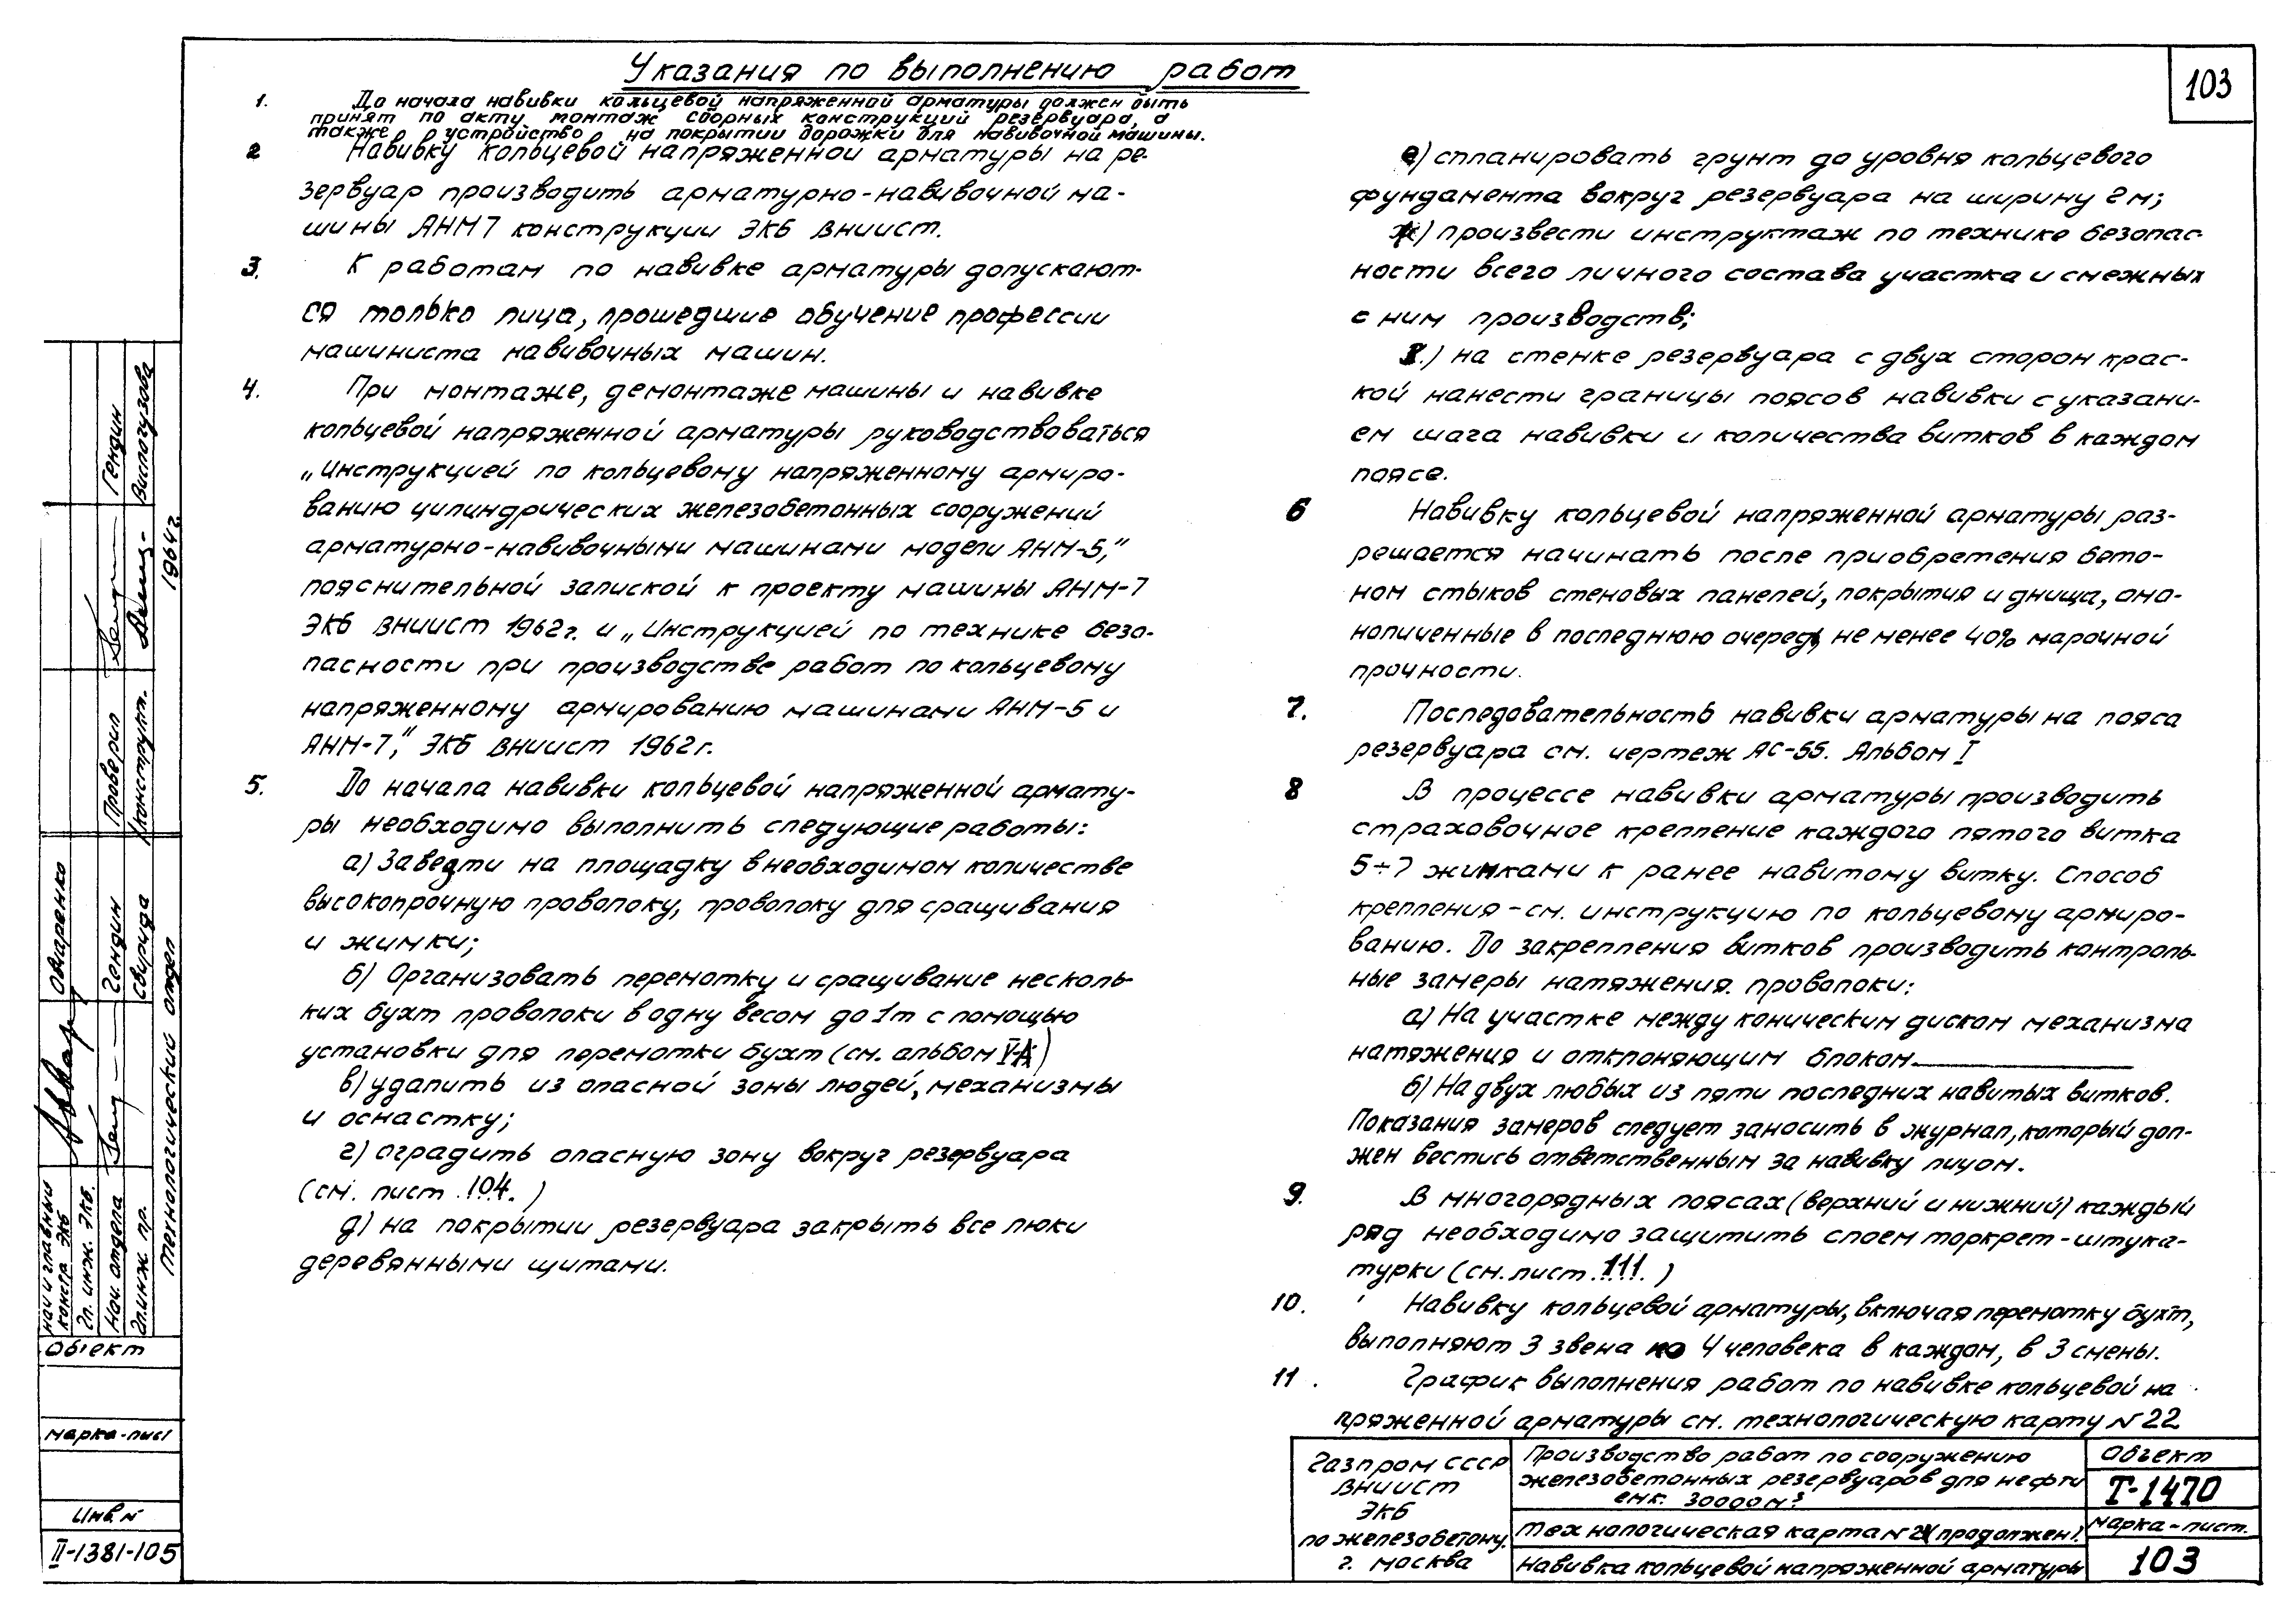 103
Указания по выполнению работ
1. До начала навивки кольцевой напряженной арматуры должен быть
принят по акту монтаж сборных конструкций резервуара, а
также устройство на покрытии дорожки для навивочной машины.
2 Навивку кольцевой напряженной арматуры на ре-
зервуар производить арматурно-навивочной ма-
шины АНМ7 конструкции ЭКБ ВНИИСТ.
3. К работам по навивке арматуры допускают-
ся только лица, прошедшие обучение профессии
машиниста навивочных машин.
4. При монтаже, демонтаже машины и навивке
кольцевой напряженной арматуры руководствоваться
„Инструкцией по кольцевому напряженному армиро-
ванию цилиндрических железобетонных сооружений
арматурно-навивочными машинами модели АНМ-5,"
пояснительной запиской к проекту машины АНМ-7
ЭКБ ВНИИСТ 1962г. и „Инструкцией по технике безо-
пасности при производстве работ по кольцевому
напряженному армированию машинами АНМ-5 и
АНМ-7," ЭКБ ВНИИСТ 1962г.
5. До начала навивки кольцевой напряженной армату-
ры необходимо выполнить следующие работы:
а) Завезти на площадку в необходимом количестве
высокопрочную проволоку, проволоку для сращивания
и жимки;
б) Организовать перемотку и сращивание несколь-
ких бухт проволоки в одну весом до 1т с помощью
установки для перемотки бухт (см. альбом )
в) удалить из опасной зоны людей, механизмы
и оснастку;
г) оградить опасную зону вокруг резервуара
(см. лист 104.)
д) на покрытии резервуара закрыть все люки
деревянными щитами.
е) спланировать грунт до уровня кольцевого
фундамента вокруг резервуара на ширину 2м;
ж) произвести инструктаж по технике безопас-
ности всего личного состава участка и смежных
с ним производств;
.) на стенке резервуара с двух сторон крас-
кой нанести границы поясов навивки с указани-
ем шага навивки и количества витков в каждом
поясе.
6 Навивку кольцевой напряженной арматуры раз-
решается начинать после приобретения бето-
ном стыков стеновых панелей, покрытия и днища, омо-
ноличенные в последнюю очередь, не менее 40% марочной
прочности.
7. Последовательность навивки арматуры на пояса
резервуара см. чертеж АС-55. Альбом I
8 В процессе навивки арматуры производить
страховочное крепление каждого пятого витка
5÷7 жимками к ранее навитому витку. Способ
крепления - см. инструкцию по кольцевому армиро-
ванию. До закрепления витков производить контроль-
ные замеры натяжения проволоки:
а) На участке между коническим диском механизма
натяжения и отклоняющим блоком.
б) На двух любых из пяти последних навитых витков.
Показания замеров следует заносить в журнал, который дол-
жен вестись ответственным за навивку лицом.
9. В многорядных поясах (верхний и нижний) каждый
ряд необходимо защитить слоем торкрет-штука-
турки (см. лист 111.)
10. Навивку кольцевой арматуры, включая перемотку бухт,
выполняют 3 звена по 4 человека в каждом, в 3 смены.
11. График выполнения работ по навивке кольцевой на
пряженной арматуры см. технологическую карту N22
Газпром СССР
ВНИИСТ
ЭКБ
по железобетону.
г. Москва
Производство работ по сооружению
железобетонных резервуаров для нефти
емк. 30000м³
Технологическая карта N 21 (продолжен).
Навивка кольцевой напряженной арматуры
Объект
Т-1470
марка-лист.
103
Гендин
Вислогузова
1964г.
Проверил
Конструкт.
Овчаренко
Гендин
Свирида
Технологический отдел
нач и главный
констр ЭКБ
Гл. инж. ЭКБ.
Нач. отдела
Гл.инж. пр.
Объект
марка-лист
Инв.N
II-1381-105